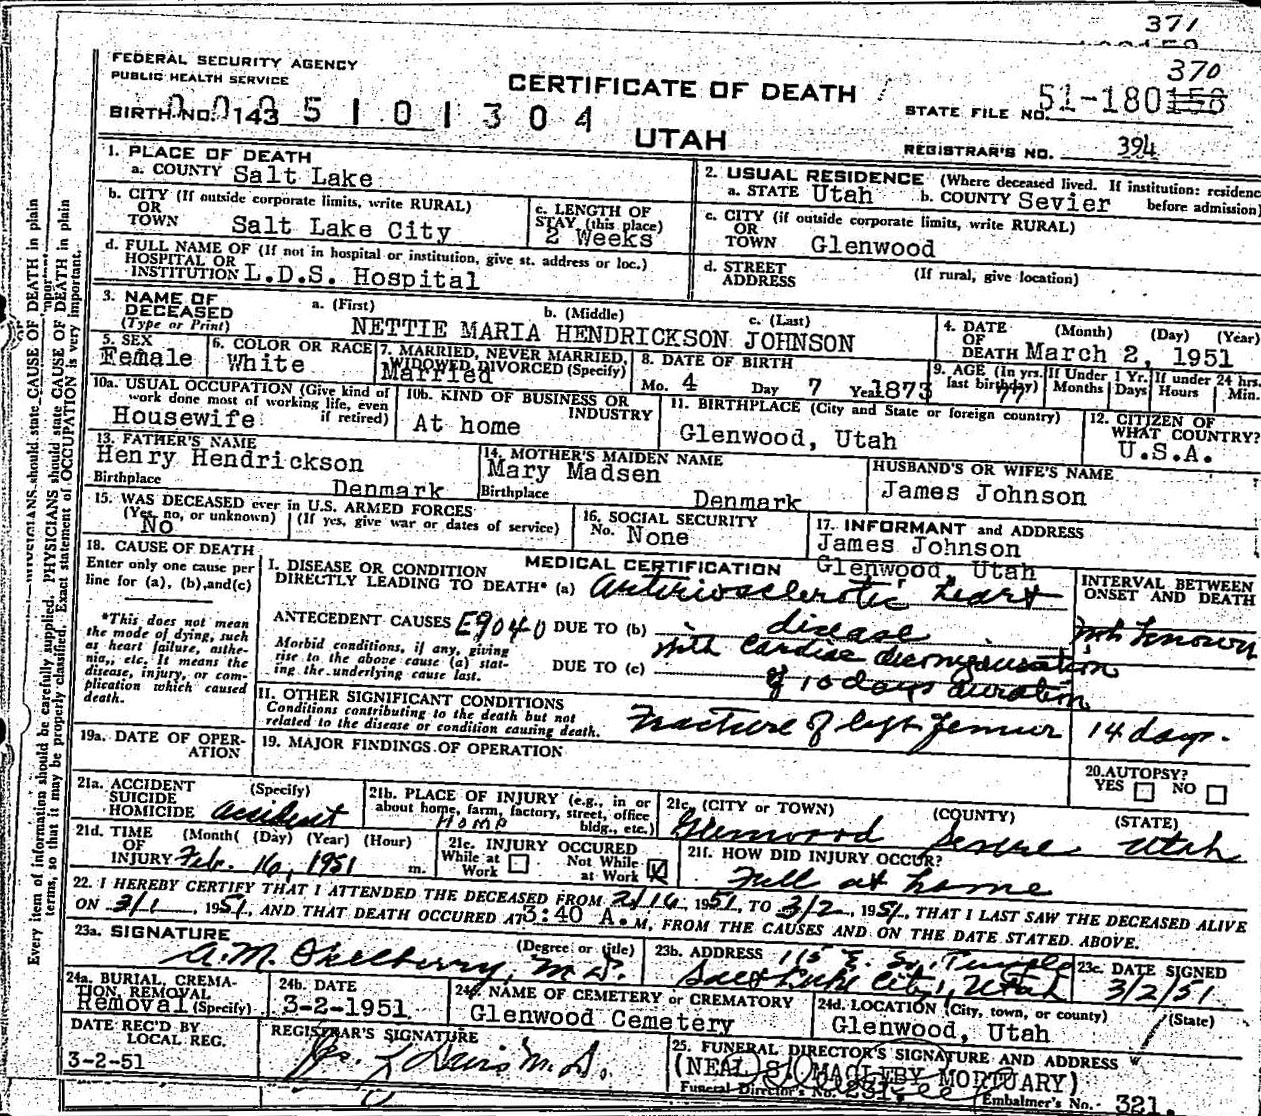 371
370
FEDERAL SECURITY AGENCY
PUBLIC HEALTH SERVICE
CERTIFICATE OF DEATH
UTAH
BIRTH NO. 143 5 1 0 1 3 0 4
STATE FILE NO. 51-180158
REGISTRAR'S NO. 394
1. PLACE OF DEATH
a. COUNTY Salt Lake
b. CITY (If outside corporate limits, write RURAL)
OR
TOWN Salt Lake City
c. LENGTH OF
STAY (this place)
2 Weeks
d. FULL NAME OF (If not in hospital or institution, give st. address or loc.)
HOSPITAL OR
INSTITUTION L.D.S. Hospital
2. USUAL RESIDENCE (Where deceased lived. If institution: residenc
a. STATE Utah b. COUNTY Sevier before admission)
c. CITY (if outside corporate limits, write RURAL)
OR
TOWN Glenwood
d. STREET (If rural, give location)
ADDRESS
3. NAME OF
DECEASED
(Type or Print)
a. (First) b. (Middle) c. (Last)
NETTIE MARIA HENDRICKSON JOHNSON
4. DATE (Month) (Day) (Year)
OF
DEATH March 2, 1951
5. SEX
Female
6. COLOR OR RACE
White
7. MARRIED, NEVER MARRIED,
WIDOWED DIVORCED (Specify)
Married
8. DATE OF BIRTH
Mo. 4 Day 7 Year 1873
9. AGE (In yrs.
last birthday) 77
If Under 1 Yr.
Months Days
If under 24 hrs.
Hours Min.
10a. USUAL OCCUPATION (Give kind of
work done most of working life, even
if retired)
Housewife
10b. KIND OF BUSINESS OR
INDUSTRY
At home
11. BIRTHPLACE (City and State or foreign country)
Glenwood, Utah
12. CITIZEN OF
WHAT COUNTRY?
U.S.A.
13. FATHER'S NAME
Henry Hendrickson
Birthplace Denmark
14. MOTHER'S MAIDEN NAME
Mary Madsen
Birthplace Denmark
HUSBAND'S OR WIFE'S NAME
James Johnson
15. WAS DECEASED ever in U.S. ARMED FORCES
(Yes, no, or unknown) (If yes, give war or dates of service)
No
16. SOCIAL SECURITY
No. None
17. INFORMANT and ADDRESS
James Johnson
Glenwood, Utah
18. CAUSE OF DEATH
Enter only one cause per
line for (a), (b), and (c)
*This does not mean
the mode of dying, such
as heart failure, asthe-
nia, etc. It means the
disease, injury, or com-
plication which caused
death.
MEDICAL CERTIFICATION
I. DISEASE OR CONDITION
DIRECTLY LEADING TO DEATH* (a) Arteriosclerotic heart
ANTECEDENT CAUSES E9040 DUE TO (b) disease
Morbid conditions, if any, giving
rise to the above cause (a) stat-
ing the underlying cause last.
with cardiac decompensation
DUE TO (c) of 10 days duration
INTERVAL BETWEEN
ONSET AND DEATH
not known
II. OTHER SIGNIFICANT CONDITIONS
Conditions contributing to the death but not
related to the disease or condition causing death.
Fracture of left femur 14 days.
19a. DATE OF OPER-
ATION
19. MAJOR FINDINGS OF OPERATION
20. AUTOPSY?
YES NO
21a. ACCIDENT (Specify)
SUICIDE
HOMICIDE accident
21b. PLACE OF INJURY (e.g., in or
about home, farm, factory, street, office
bldg., etc.)
Home
21c. (CITY or TOWN) (COUNTY) (STATE)
Glenwood Sevier Utah
21d. TIME (Month) (Day) (Year) (Hour)
OF
INJURY Feb. 16, 1951 m.
21e. INJURY OCCURED
While at Work Not While at Work
21f. HOW DID INJURY OCCUR?
Fall at home
22. I HEREBY CERTIFY THAT I ATTENDED THE DECEASED FROM 2/16, 1951, TO 3/2, 1951, THAT I LAST SAW THE DECEASED ALIVE
ON 3/1, 1951, AND THAT DEATH OCCURED AT 3:40 A. M, FROM THE CAUSES AND ON THE DATE STATED ABOVE.
23a. SIGNATURE (Degree or title)
A.M. Okelberry, M.D.
23b. ADDRESS 115 E. So. Temple
Salt Lake City, Utah
23c. DATE SIGNED
3/2/51
24a. BURIAL, CREMA-
TION REMOVAL
Removal (Specify)
24b. DATE
3-2-1951
24c. NAME OF CEMETERY or CREMATORY
Glenwood Cemetery
24d. LOCATION (City, town, or county) (State)
Glenwood, Utah
DATE REC'D BY
LOCAL REG.
3-2-51
REGISTRAR'S SIGNATURE
Davis M.D.
25. FUNERAL DIRECTOR'S SIGNATURE AND ADDRESS
(NEAL S. MAGLEBY MORTUARY)
Funeral Director's No. 231. Embalmer's No. 321.
Every item of information should be carefully supplied. PHYSICIANS should state CAUSE OF DEATH in plain
terms, so that it may be properly classified. Exact statement of OCCUPATION is very important.